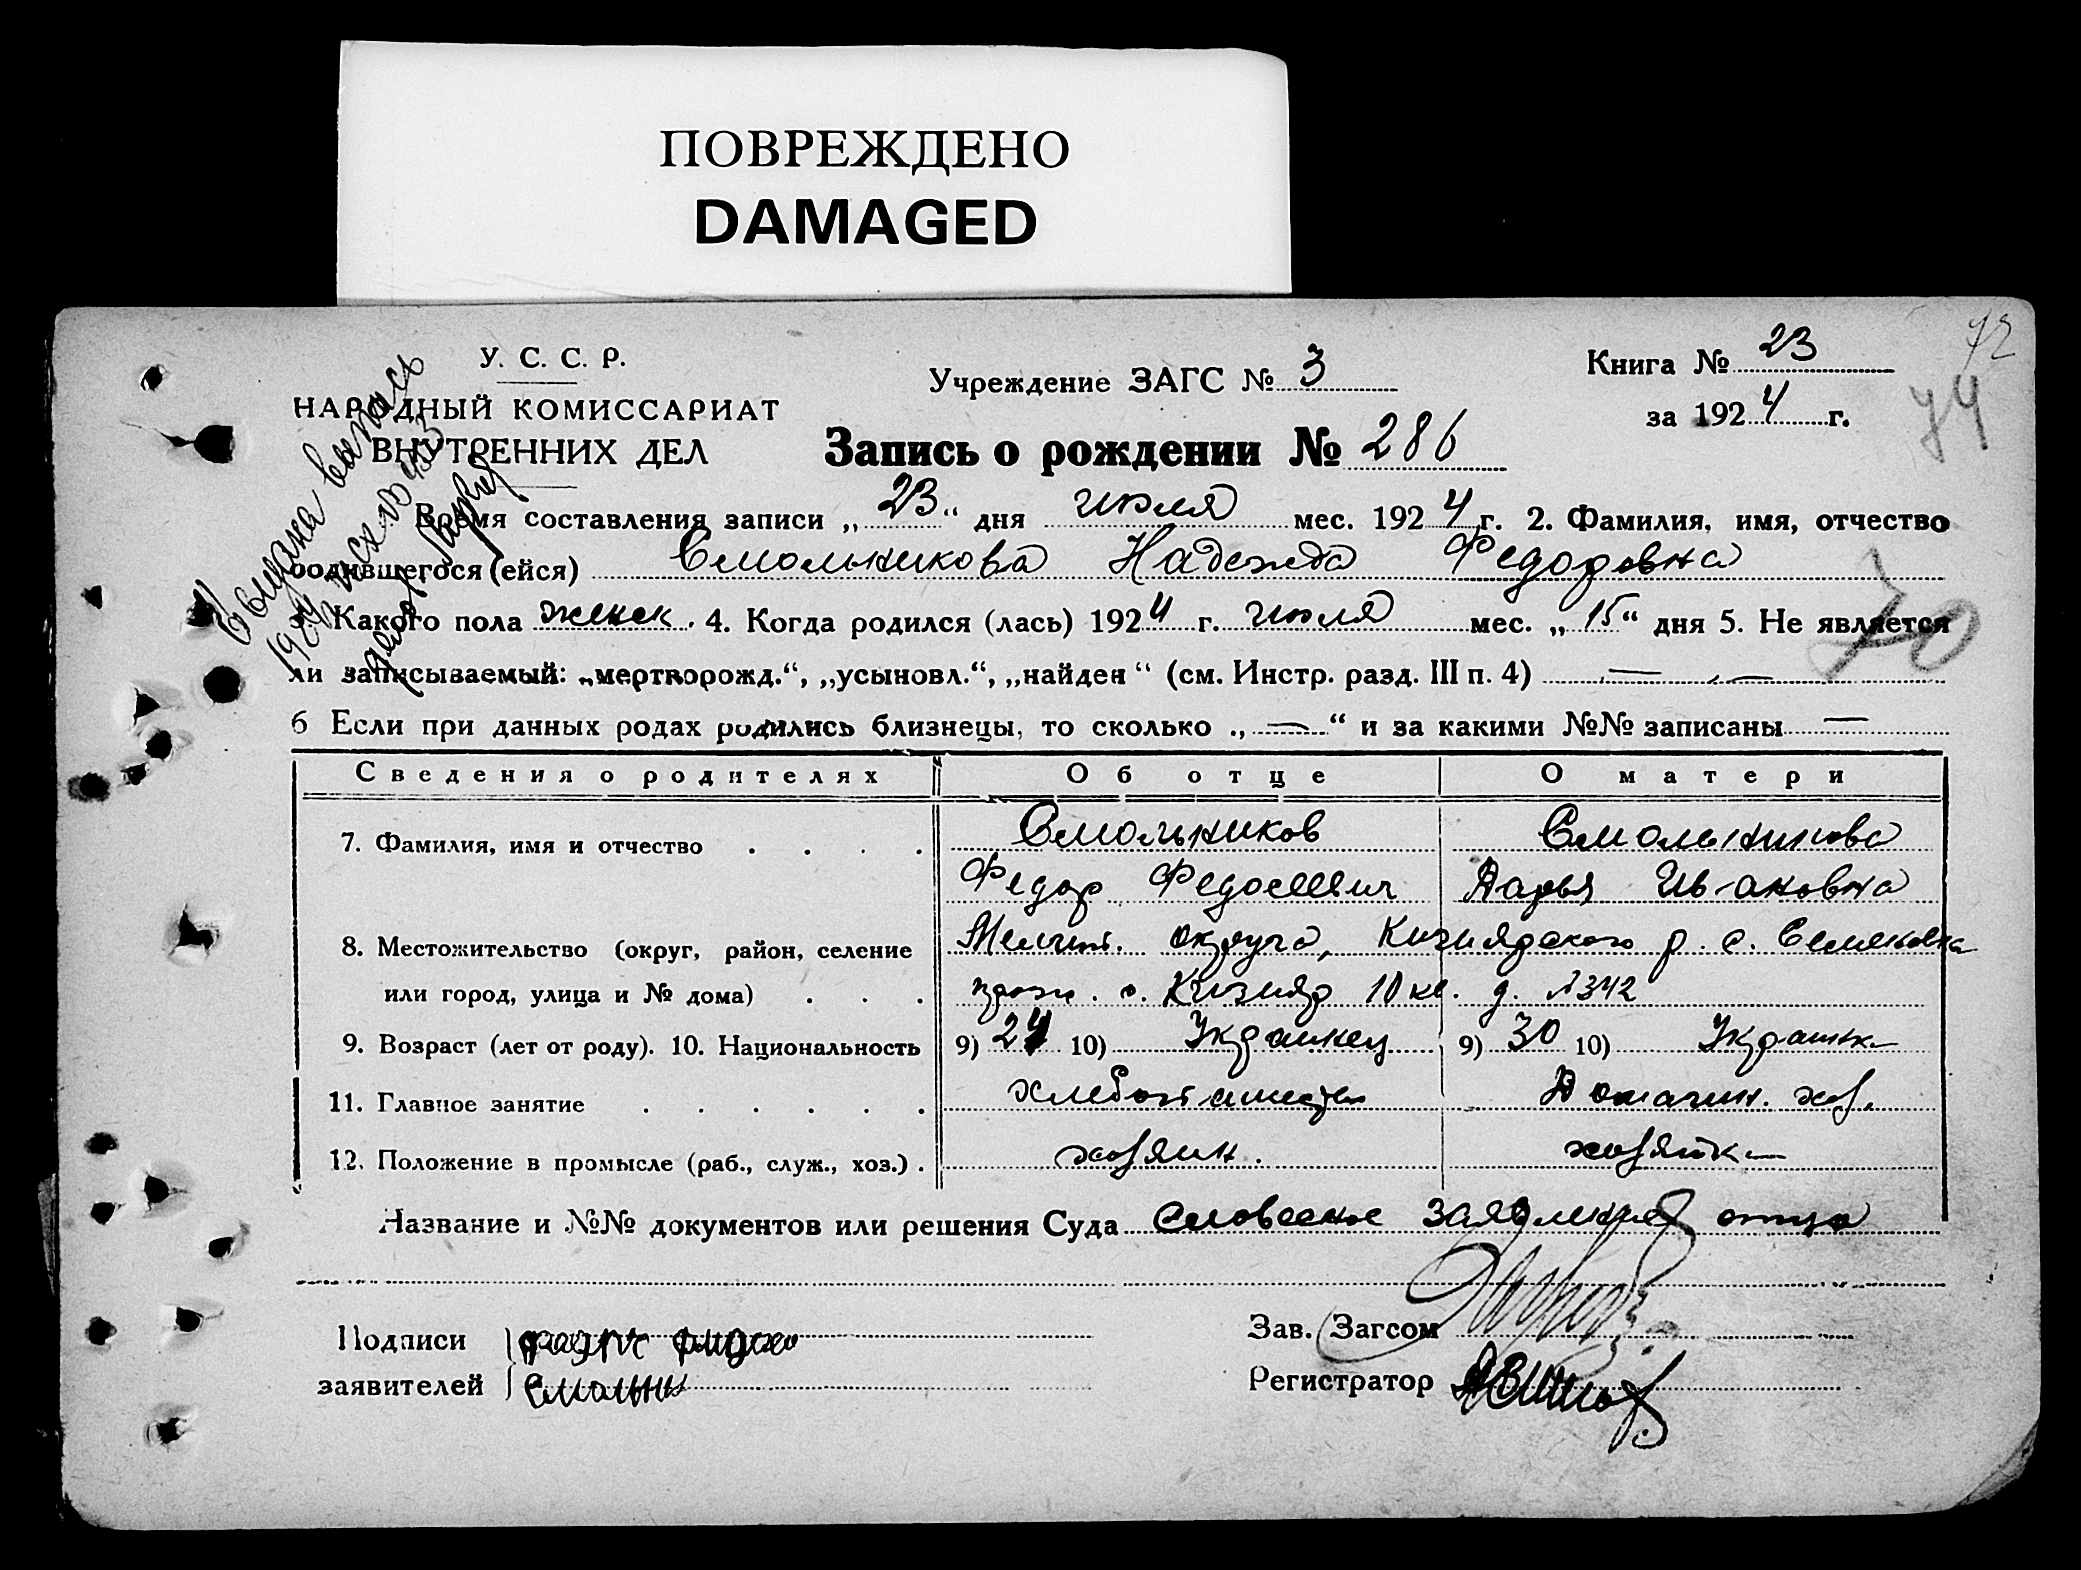 ПОВРЕЖДЕНО
DAMAGED
У. С. С. Р.
НАРОДНЫЙ КОМИССАРИАТ
ВНУТРЕННИХ ДЕЛ
Учреждение ЗАГС № 3
Книга № 23
за 1924 г.
72
74
Запись о рождении № 286
Выдана выпись
Время составления записи „23“ дня июля мес. 1924 г. 2. Фамилия, имя, отчество
родившегося (ейся) Смольникова Надежда Федоровна
70
3. Какого пола женск. 4. Когда родился (лась) 1924 г. июля мес. „15“ дня 5. Не является
ли записываемый: „мертворожд.“, „усыновл.“, „найден“ (см. Инстр. разд. III п. 4) — —
6 Если при данных родах родились близнецы, то сколько „—“ и за какими №№ записаны —
Сведения о родителях Об отце О матери
7. Фамилия, имя и отчество Смольников Смольникова
Федор Федосеевич Дарья Ивановна
8. Местожительство (округ, район, селение Мелит. округа, Кизиярского р. с. Семеновка
или город, улица и № дома) прож. с. Кизияр 10 кв. д. №342
9. Возраст (лет от роду). 10. Национальность 9) 24 10) Украинец 9) 30 10) Украинк
11. Главное занятие хлебопашество Домашн. хоз.
12. Положение в промысле (раб., служ., хоз.) хозяин. хозяйка
Название и №№ документов или решения Суда словесное заявление отца
Подписи
заявителей Смольни
Зав. Загсом
Регистратор